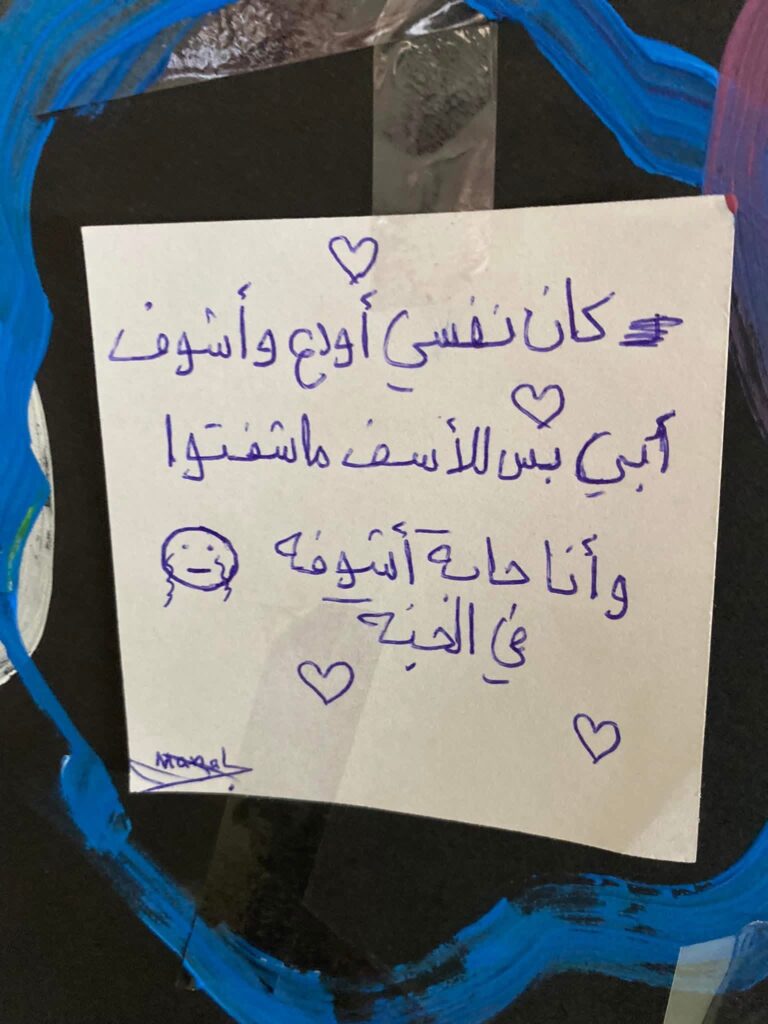 كان نفسي أودع وأشوف
أبي بس للأسف ماشفتوا
وأنا حابة أشوفه
في الجنه